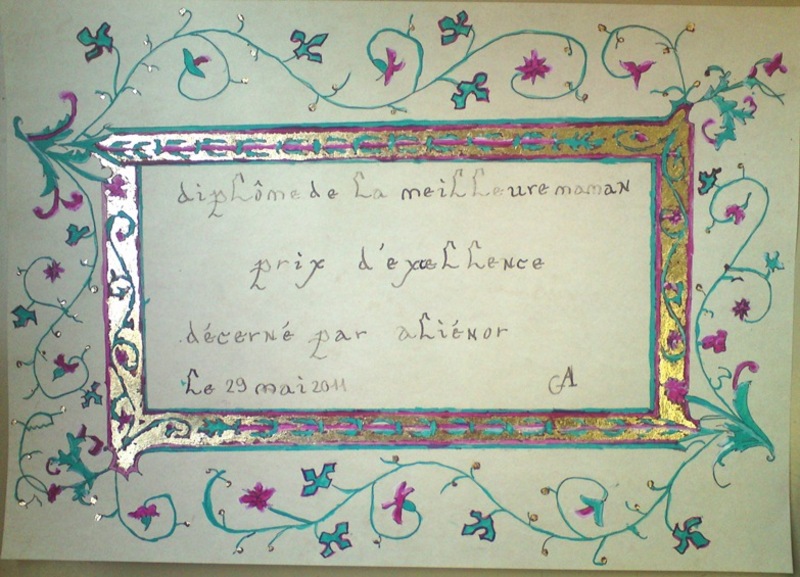 diplôme de la meilleure maman
prix d'exellence
décerné par aliénor
le 29 mai 2011
A